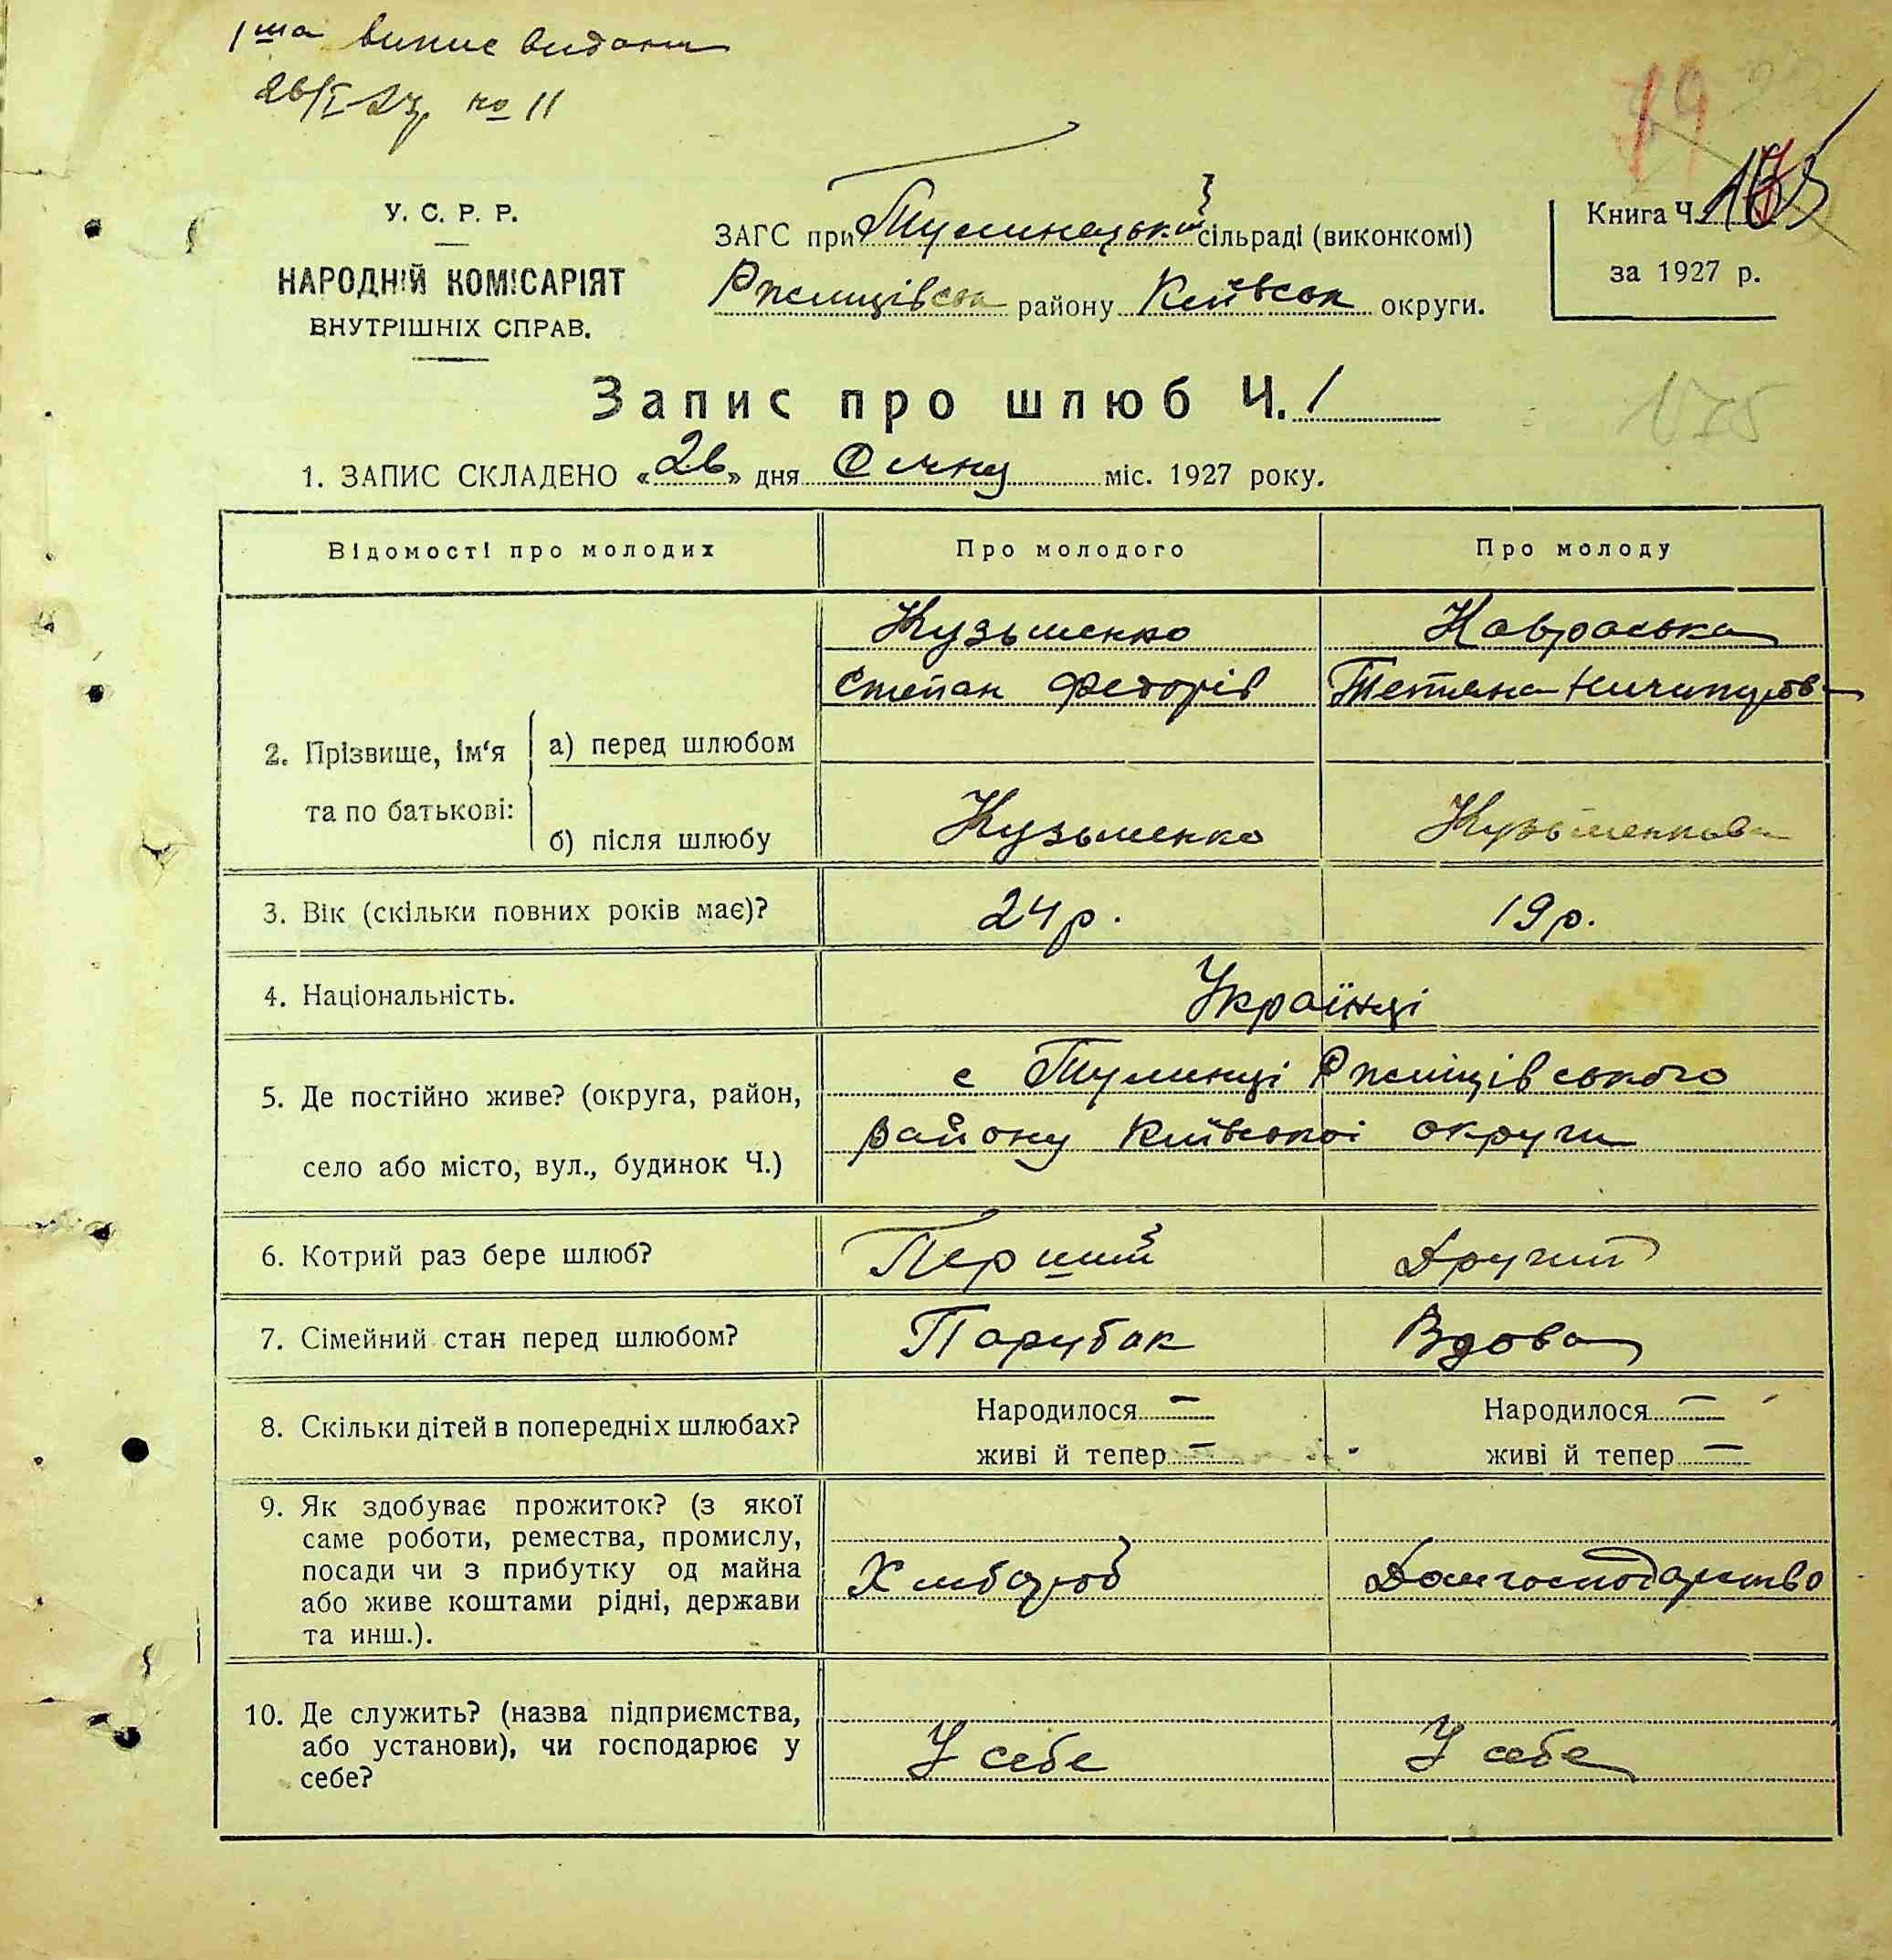 1ша випис видани
26/I 27р. № 11
У. С. Р. Р.
НАРОДНІЙ КОМІСАРІЯТ
ВНУТРІШНІХ СПРАВ.
ЗАГС при Тулинецький сільраді (виконкомі)
Ржищівськ району Київськ округи.
Книга Ч.
за 1927 р.
Запис про шлюб Ч. 1
175
1. ЗАПИС СКЛАДЕНО «26» дня Січну міс. 1927 року.
Відомості про молодих Про молодого Про молоду
Кузьменко Кавраська
Степан Федорів Тетяна Ничипуров
2. Прізвище, ім'я та по батькові: а) перед шлюбом
б) після шлюбу Кузьменко Кузьменкова
3. Вік (скільки повних років має)? 24 р. 19 р.
4. Національність. Українці
5. Де постійно живе? (округа, район, с Тулинці Ржищівського
село або місто, вул., будинок Ч.) району Київської округи
6. Котрий раз бере шлюб? Перший Другий
7. Сімейний стан перед шлюбом? Парубок Вдова
8. Скільки дітей в попередніх шлюбах? Народилося — Народилося —
живі й тепер — живі й тепер —
9. Як здобуває прожиток? (з якої
саме роботи, ремества, промислу,
посади чи з прибутку од майна
або живе коштами рідні, держави
та инш.).
Хлибороб Домгосподарство
10. Де служить? (назва підприємства,
або установи), чи господарює у
себе?
У себе У себе